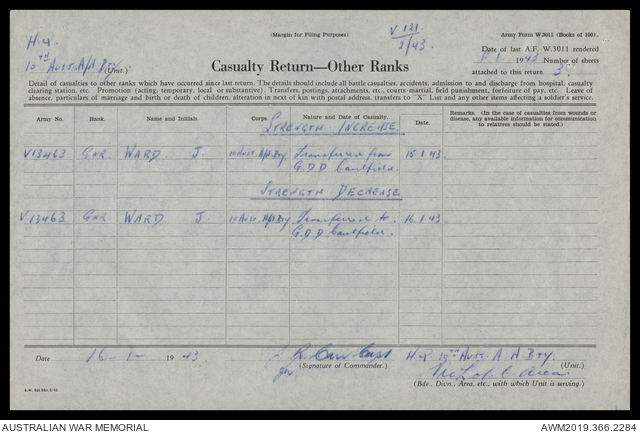 (Margin for Filing Purposes)
V 121
2/43
Army Form W.3011 (Books of 100).
H.Q.
10th Aust. A/A Bty (Unit.)
Casualty Return—Other Ranks
Date of last A.F. W.3011 rendered
1943 Number of sheets
attached to this return 3
Detail of casualties to other ranks which have occurred since last return. The details should include all battle casualties, accidents, admission to and discharge from hospital, casualty
clearing station, etc. Promotion (acting, temporary, local or substantive). Transfers, postings, attachments, etc., courts-martial, field punishment, forfeiture of pay, etc. Leave of
absence, particulars of marriage and birth or death of children, alteration in next of kin with postal address, transfers to "X" List and any other items affecting a soldier's service.
Army No. Rank. Name and Initials. Corps. Nature and Date of Casualty. Date. Remarks. (In the case of casualties from wounds or
disease, any available information for communication
to relatives should be stated.)
STRENGTH INCREASE.
V13463 GNR. WARD. J. 10 Aust. A/A Bty. Transferred from 15.1.43.
G.D.D Caulfield.
STRENGTH DECREASE
V13463 GNR. WARD. J 10 Aust. A/A Bty Transferred to 16.1.43.
G.D.D Caulfield.
Date 16-1- 1943
(Signature of Commander.)
H.Q. 10th Aust. A A Bty. (Unit.)
Area
(Bde., Divn., Area, etc., with which Unit is serving.)
AUSTRALIAN WAR MEMORIAL
AWM2019.366.2284